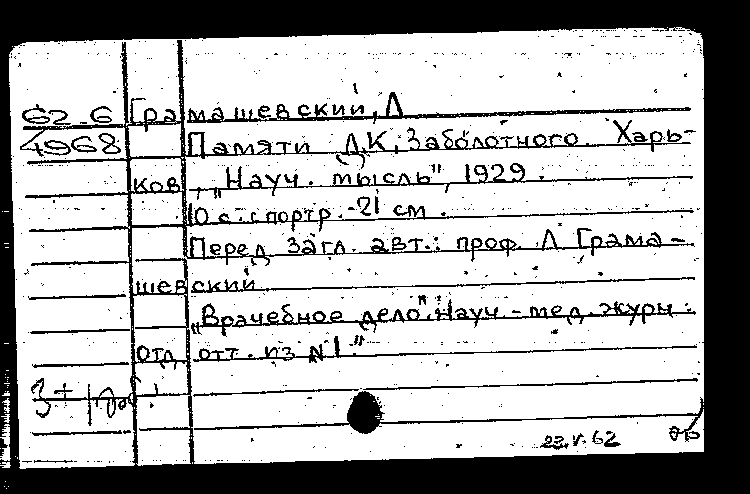 62-6 Грамашевский, Л
4968 Памяти Д.К. Заболотного. Харь-
ков, „Науч. мысль", 1929.
10 с. с портр. - 21 см.
Перед загл. авт.: проф. Л Грама-
шевский
„Врачебное дело". Науч.-мед. журн.
отд. отт. из №1."
3+1
23.V.62